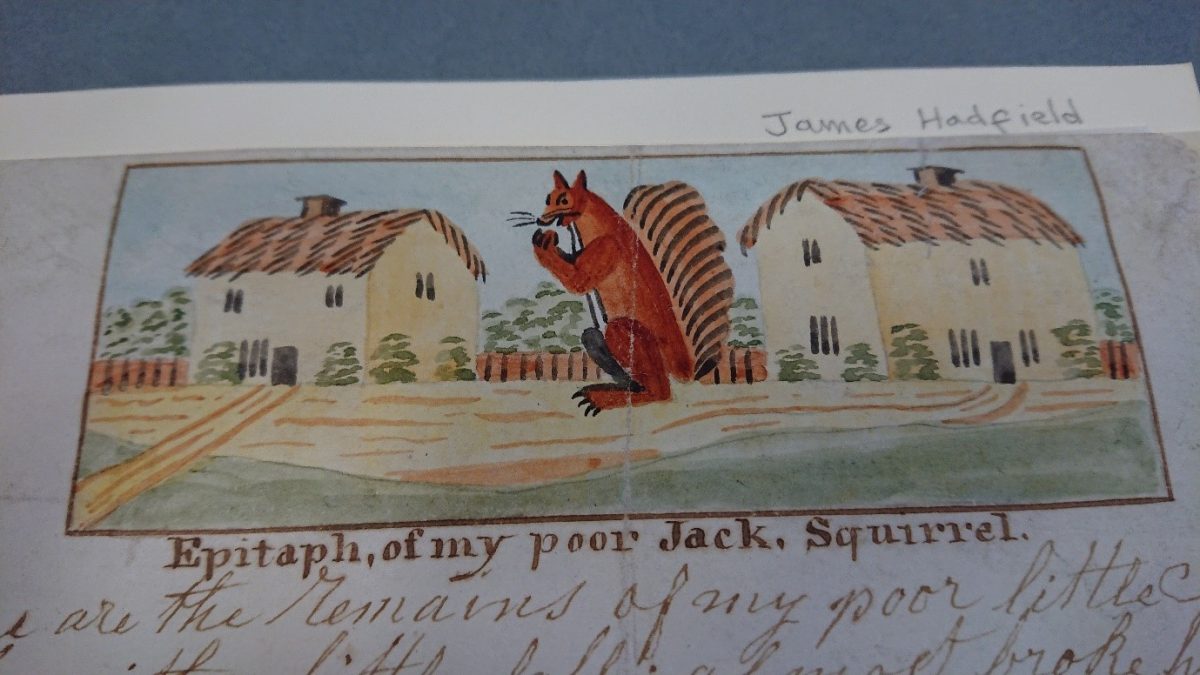 James Hadfield
Epitaph, of my poor Jack, Squirrel.
are the remains of my poor little
little almost broke